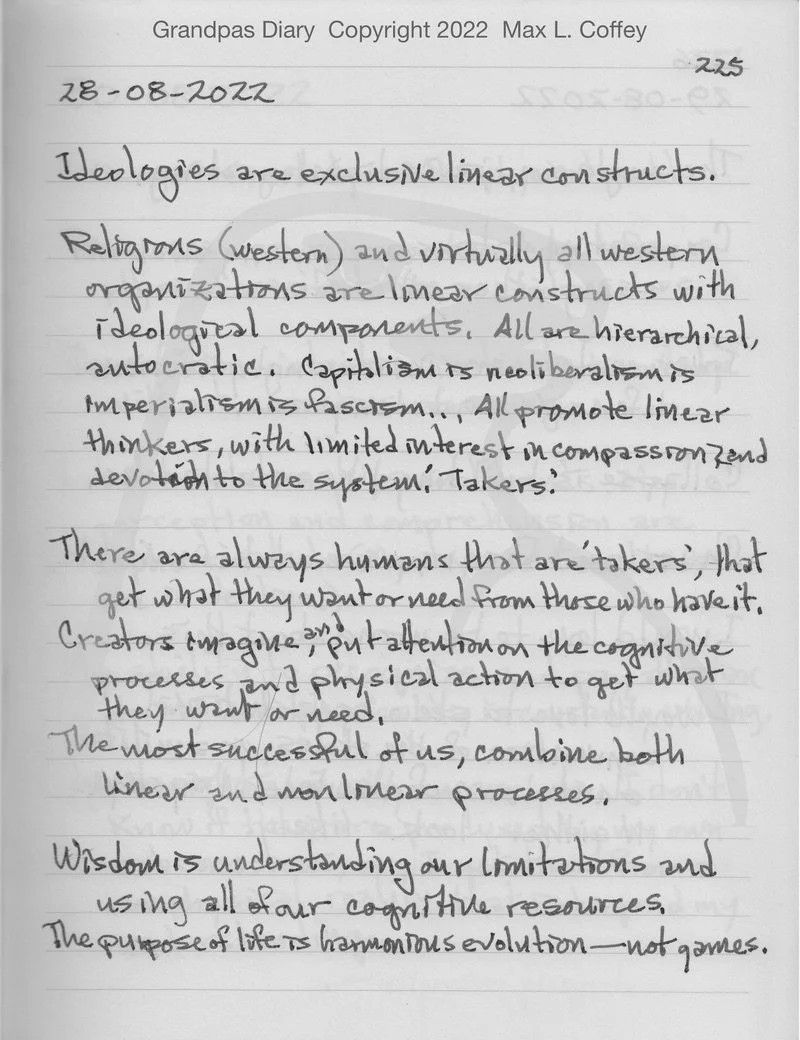 Grandpas Diary Copyright 2022 Max L. Coffey
225
28-08-2022
Ideologies are exclusive linear constructs.
Religions (western) and virtually all western
organizations are linear constructs with
ideological components. All are hierarchical,
autocratic. Capitalism is neoliberalism is
imperialism is fascism... All promote linear
thinkers, with limited interest in compassion and
devotion to the system. 'Takers.'
There are always humans that are 'takers', that
get what they want or need from those who have it.
Creators imagine, and put attention on the cognitive
processes and physical action to get what
they want or need.
The most successful of us, combine both
linear and nonlinear processes.
Wisdom is understanding our limitations and
using all of our cognitive resources.
The purpose of life is harmonious evolution—not games.